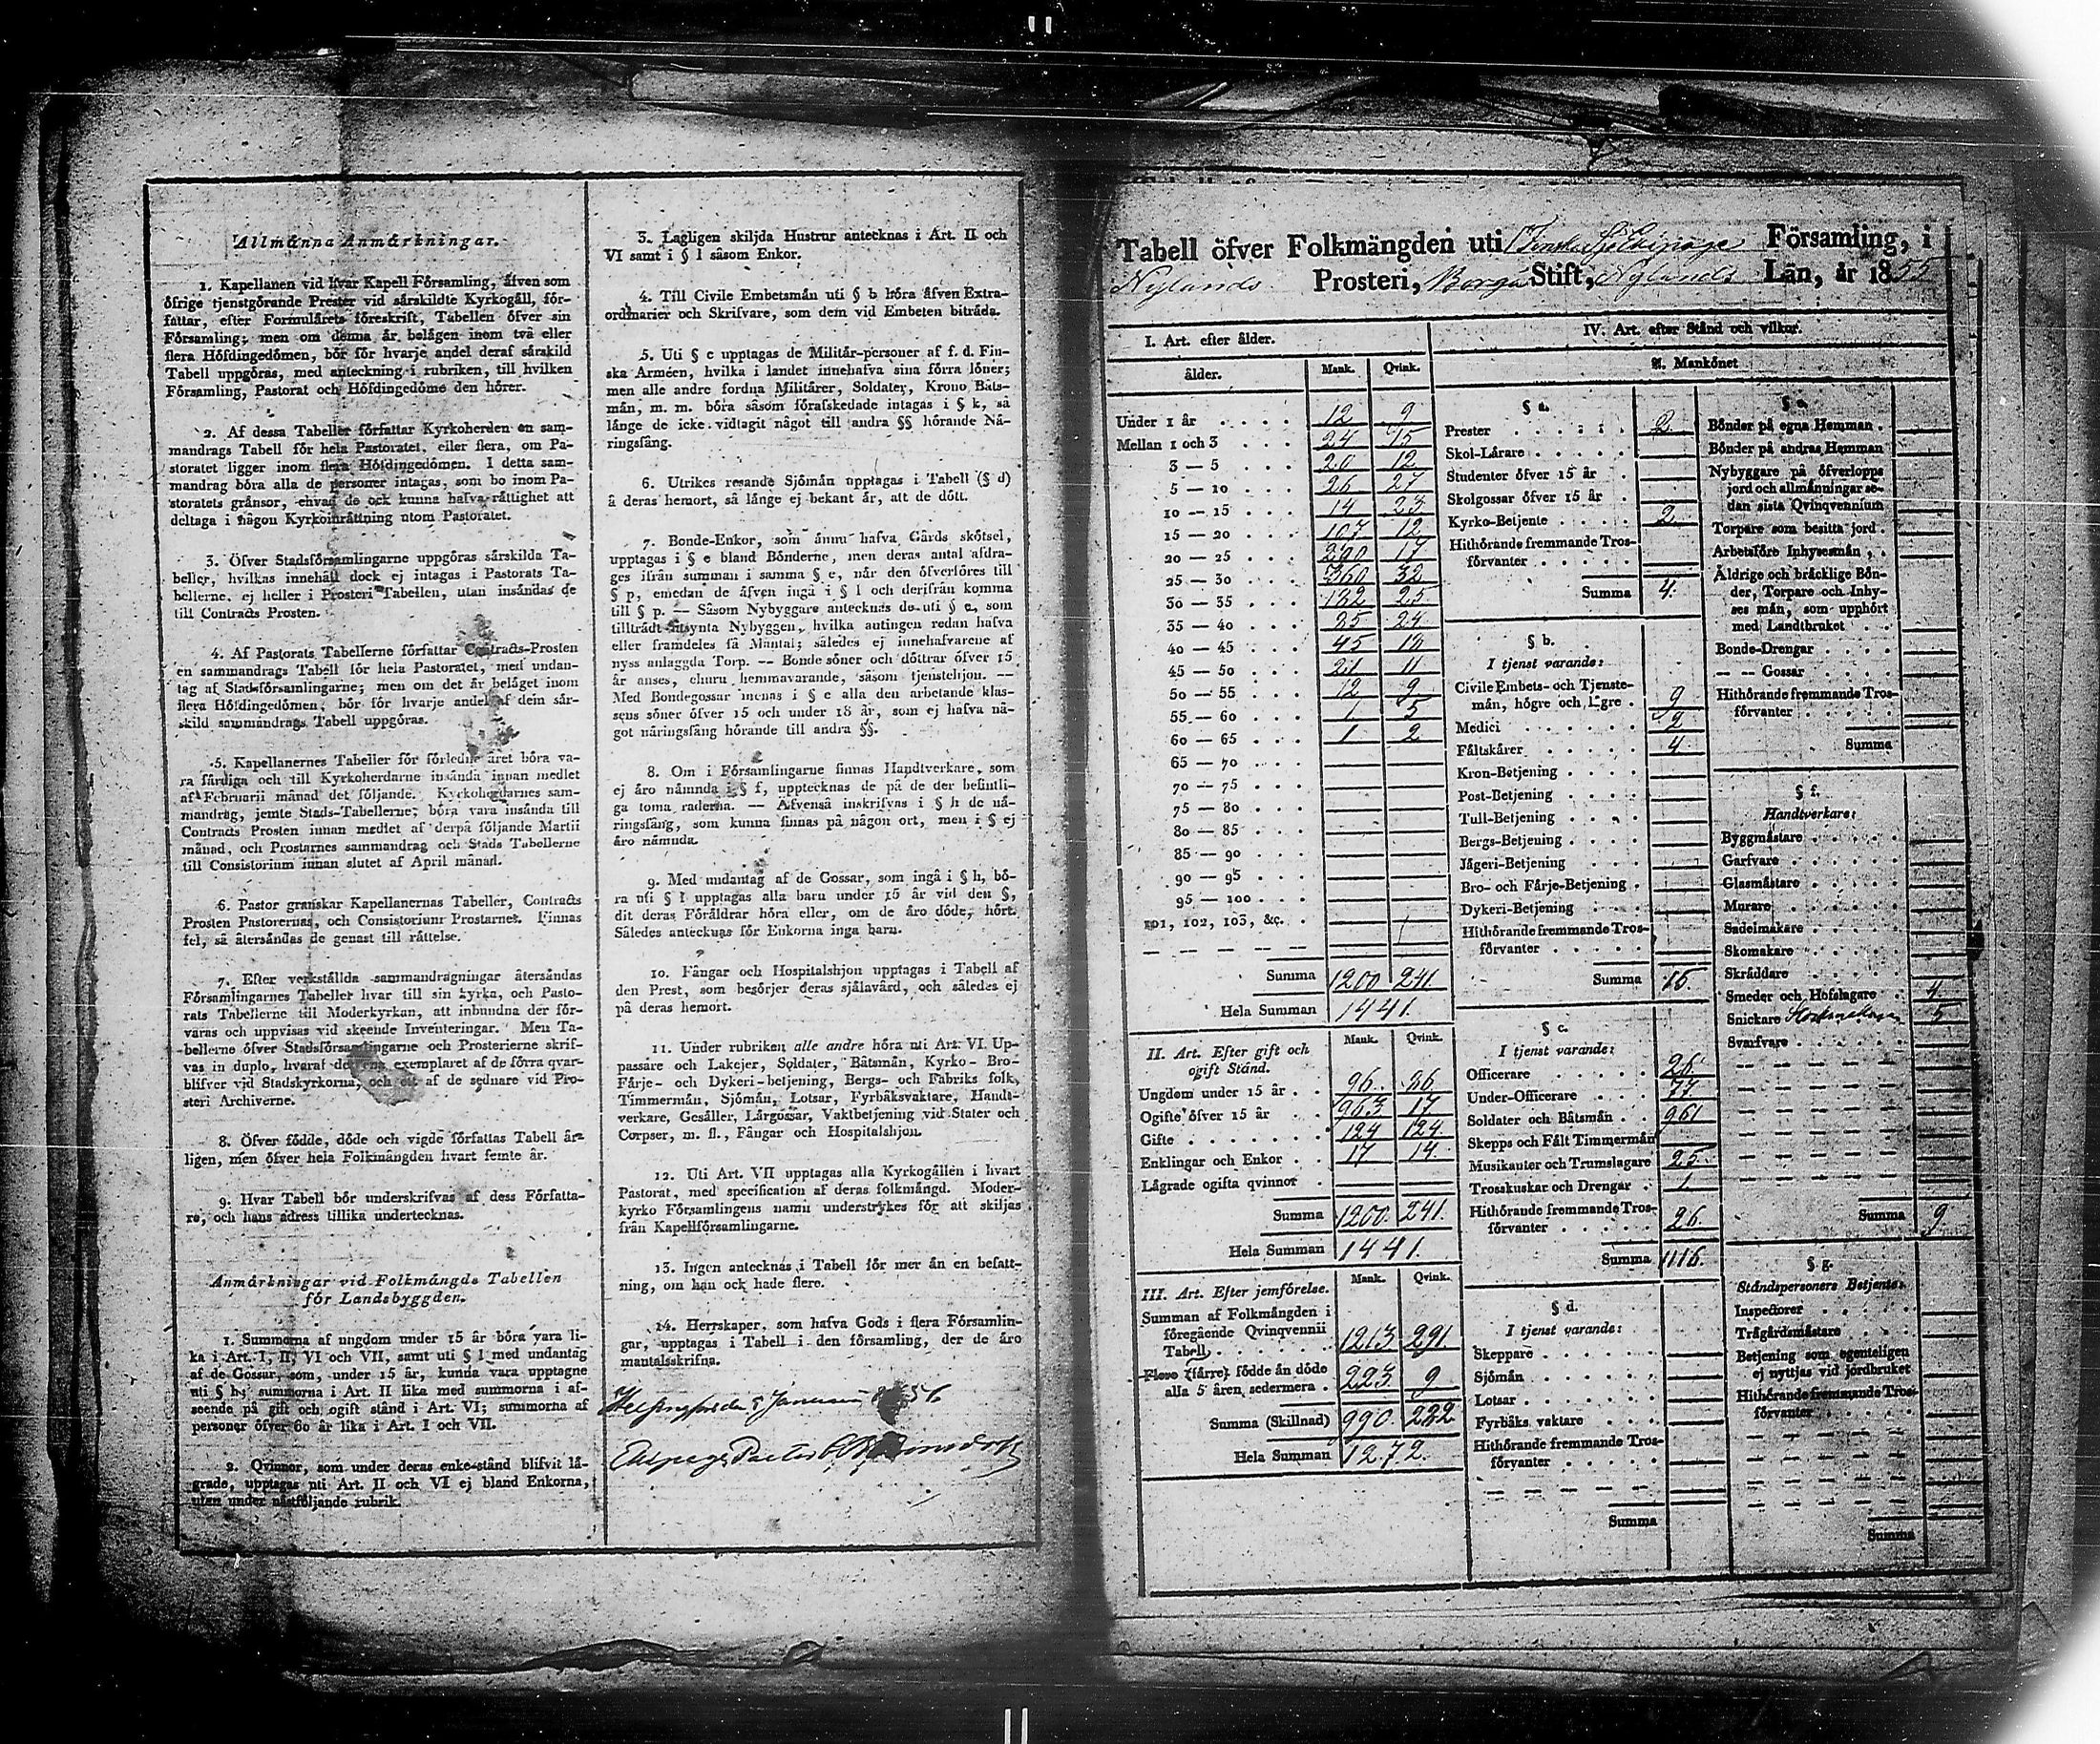 Allmänna Anmärkningar.
1. Kapellanen vid hvar Kapell Församling, äfven som
öfrige tjenstgörande Prester vid särskildte Kyrkogäll, för-
fattar, efter Formulärets föreskrift, Tabellen öfver sin
Församling; men om denna är belägen inom två eller
flera Höfdingedömen, bör för hvarje andel deraf särskild
Tabell uppgöras, med anteckning i rubriken, till hvilken
Församling, Pastorat och Höfdingedöme den hörer.
2. Af dessa Tabeller författar Kyrkoherden en sam-
mandrags Tabell för hela Pastoratet, eller flera, om Pa-
storatet ligger inom flera Höfdingedömen. I detta sam-
mandrag böra alla de personer intagas, som bo inom Pa-
storatets gränsor, ehvad de ock kunna hafva rättighet att
deltaga i någon Kyrkoinrättning utom Pastoratet.
3. Öfver Stadsförsamlingarne uppgöras särskilda Ta-
beller, hvilkas innehåll dock ej intagas i Pastorats Ta-
bellerne, ej heller i Prosteri Tabellen, utan insändas de
till Contracts Prosten.
4. Af Pastorats Tabellerne författar Contracts-Prosten
en sammandrags Tabell för hela Pastoratet, med undan-
tag af Stadsförsamlingarne; men om det är beläget inom
flera Höfdingedömen, bör för hvarje andel af dem sär-
skild sammandrags Tabell uppgöras.
5. Kapellanernes Tabeller för förledne året böra va-
ra färdiga och till Kyrkoherdarne insända innan medlet
af Februarii månad det följande. Kyrkoherdarnes sam-
mandrag, jemte Stads-Tabellerne, böra vara insända till
Contracts Prosten innan medlet af derpå följande Martii
månad, och Prostarnes sammandrag och Stads Tabellerne
till Consistorium innan slutet af April månad.
6. Pastor granskar Kapellanernas Tabeller, Contracts
Prosten Pastorernas, och Consistorium Prostarnes. Finnas
fel, så återsändas de genast till rättelse.
7. Efter verkställda sammandragningar återsändas
Församlingarnes Tabeller hvar till sin kyrka, och Pasto-
rats Tabellerne till Moderkyrkan, att inbundna der för-
varas och uppvisas vid skeende Inventeringar. Men Ta-
bellerne öfver Stadsförsamlingarne och Prosterierne skrif-
vas in duplo, hvaraf det ena exemplaret af de förra qvar-
blifver vid Stadskyrkorna, och ett af de sednare vid Pro-
steri Archiverne.
8. Öfver födde, döde och vigde författas Tabell år-
ligen, men öfver hela Folkmängden hvart femte år.
9. Hvar Tabell bör underskrifvas af dess Författa-
re, och hans adress tillika undertecknas.
Anmärkningar vid Folkmängds Tabellen
för Landsbyggden.
1. Summorna af ungdom under 15 år böra vara li-
ka i Art. I, II, VI och VII, samt uti § l med undantag
af de Gossar, som, under 15 år, kunna vara upptagne
uti § h; summorna i Art. II lika med summorna i af-
seende på gift och ogift stånd i Art. VI; summorna af
personer öfver 60 år lika i Art. I och VII.
2. Qvinnor, som under deras enke-stånd blifvit lä-
grade, upptagas uti Art. II och VI ej bland Enkorna,
utan under nästföljande rubrik.
3. Lagligen skiljda Hustrur antecknas i Art. II och
VI samt i § l såsom Enkor.
4. Till Civile Embetsmän uti § b höra äfven Extra-
ordinarier och Skrifvare, som dem vid Embeten biträda.
5. Uti § c upptagas de Militär-personer af f. d. Fin-
ska Arméen, hvilka i landet innehafva sina förra löner;
men alle andre fordna Militärer, Soldater, Krono Båts-
män, m. m. böra såsom förafskedade intagas i § k, så
länge de icke vidtagit något till andra §§ hörande Nä-
ringsfång.
6. Utrikes resande Sjömän upptagas i Tabell (§ d)
å deras hemort, så länge ej bekant är, att de dött.
7. Bonde-Enkor, som ännu hafva Gårds skötsel,
upptagas i § e bland Bönderne, men deras antal afdra-
ges ifrån summan i samma § e, när den öfverföres till
§ p, emedan de äfven ingå i § l och derifrån komma
till § p. — Såsom Nybyggare antecknas de uti § e, som
tillträdt utsynta Nybyggen, hvilka antingen redan hafva
eller framdeles få Mantal; således ej innehafvarene af
nyss anlaggda Torp. — Bonde söner och döttrar öfver 15
år anses, churu hemmavarande, såsom tjenstehjon. —
Med Bondegossar menas i § e alla den arbetande klas-
sens söner öfver 15 och under 18 år, som ej hafva nå-
got näringsfång hörande till andra §§.
8. Om i Församlingarne finnas Handtverkare, som
ej äro nämnda i § f, upptecknas de på de der befintli-
ga toma raderna. — Äfvenså inskrifvas i § h de nä-
ringsfång, som kunna finnas på någon ort, men i § ej
äro nämnda.
9. Med undantag af de Gossar, som ingå i § h, bö-
ra uti § l upptagas alla barn under 15 år vid den §,
dit deras Föräldrar höra eller, om de äro döde, hört.
Således antecknas för Enkorna inga barn.
10. Fångar och Hospitalshjon upptagas i Tabell af
den Prest, som besörjer deras själavård, och således ej
på deras hemort.
11. Under rubriken alle andre höra uti Art. VI. Up-
passare och Lakejer, Soldater, Båtsmän, Kyrko- Bro-
Färje- och Dykeri-betjening, Bergs- och Fabriks folk,
Timmermän, Sjömän, Lotsar, Fyrbåksvaktare, Handt-
verkare, Gesäller, Lärgossar, Vaktbetjening vid Stater och
Corpser, m. fl., Fångar och Hospitalshjon.
12. Uti Art. VII upptagas alla Kyrkogällen i hvart
Pastorat, med specification af deras folkmängd. Moder-
kyrko Församlingens namn understrykes för att skiljas
från Kapellförsamlingarne.
13. Ingen antecknas i Tabell för mer än en befatt-
ning, om han ock hade flere.
14. Herrskaper, som hafva Gods i flera Församlin-
gar, upptagas i Tabell i den församling, der de äro
mantalsskrifna.
Helsingfors den Januari 56
Tabell öfver Folkmängden uti Finska Församling, i
Nylands Prosteri, Borgå Stift, Nylands Län, år 1855
I. Art. efter ålder.
ålder. Mank. Qvink.
Under 1 år . . . . 12 9
Mellan 1 och 3 . . . 24 15
3 — 5 . . . 20 12
5 — 10 . . . 26 27
10 — 15 . . . 14 23
15 — 20 . . . 107 12
20 — 25 . . . 17
25 — 30 . . . 360 32
30 — 35 . . . 132 25
35 — 40 . . . 24
40 — 45 . . . 45
45 — 50 . . . 21 11
50 — 55 . . . 12 9
55 — 60 . . . 1 5
60 — 65 . . . 1 2
65 — 70 . . .
70 — 75 . . .
75 — 80 . . .
80 — 85 . . .
85 — 90 . . .
90 — 95 . . .
95 — 100 . . .
101, 102, 103, &c. .
Summa 1200 241
Hela Summan 1441.
II. Art. Efter gift och
ogift Stånd. Mank. Qvink.
Ungdom under 15 år . . 96. 86
Ogifte öfver 15 år . . 963 17
Gifte . . . . . . . 124 124.
Enklingar och Enkor . . 17 14.
Lägrade ogifta qvinnor .
Summa 1200. 241.
Hela Summan 1441.
III. Art. Efter jemförelse. Mank. Qvink.
Summan af Folkmängden i
föregående Qvinqvennii
Tabell . . . . . . 1213 291.
Flere (färre) födde än döde
alla 5 åren sedermera . 223 9
Summa (Skillnad) 990. 282
Hela Summan 1272.
IV. Art. efter Stånd och vilkor.
A. Mankönet
§ a.
Prester . . . . . 2
Skol-Lärare . . . . .
Studenter öfver 15 år .
Skolgossar öfver 15 år .
Kyrko-Betjente . . . . 2
Hithörande fremmande Tros-
förvanter . . . . .
Summa 4.
§ b.
I tjenst varande:
Civile Embets- och Tjenste-
män, högre och lägre . 9
Medici . . . . . . 2
Fältskärer . . . . . 4
Kron-Betjening . . . .
Post-Betjening . . . .
Tull-Betjening . . . .
Bergs-Betjening . . . .
Jägeri-Betjening . . .
Bro- och Färje-Betjening .
Dykeri-Betjening . . .
Hithörande fremmande Tros-
förvanter . . . . .
Summa 15.
§ c.
I tjenst varande:
Officerare . . . . . 26
Under-Officerare . . . 77
Soldater och Båtsmän . . 961
Skepps och Fält Timmermän
Musikanter och Trumslagare 25.
Trosskuskar och Drengar . 1.
Hithörande fremmande Tros-
förvanter . . . . . 26.
Summa 1116.
§ d.
I tjenst varande:
Skeppare . . . . . .
Sjömän . . . . . .
Lotsar . . . . . . .
Fyrbåks vaktare . . . .
Hithörande fremmande Tros-
förvanter . . . . .
Summa
§ e.
Bönder på egna Hemman .
Bönder på andras Hemman
Nybyggare på öfverlopps
jord och allmänningar se-
dan sista Qvinqvennium
Torpare som besitta jord .
Arbetsföre Inhysesmän . .
Åldrige och bräcklige Bön-
der, Torpare och Inhy-
ses män, som upphört
med Landtbruket . .
Bonde-Drengar . . . .
— — Gossar . . . .
Hithörande fremmande Tros-
förvanter . . . . .
Summa
§ f.
Handtverkare:
Byggmästare . . . . .
Garfvare . . . . . .
Glasmästare . . . . .
Murare . . . . . .
Sadelmakare . . . . .
Skomakare . . . . .
Skräddare . . . . .
Smeder och Hofslagare . 4.
Snickare 5
Svarfvare . . . . .
Summa 9.
§ g.
Ståndspersoners Betjente:
Inspectorer . . . . .
Trägårdsmästare . . . .
Betjening som egenteligen
ej nyttjas vid jordbruket
Hithörande fremmande Tros-
förvanter . . . . .
Summa